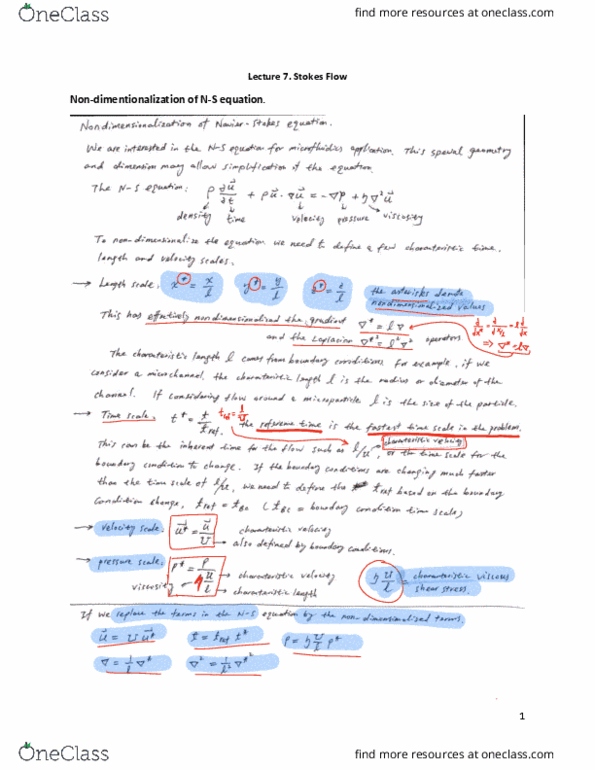 OneClass
find more resources at oneclass.com
Lecture 7. Stokes Flow
Non-dimentionalization of N-S equation.
Nondimensionalization of Navier-Stokes equation.
We are interested in the N-S equation for microfluidics application. This special geometry
and dimension may allow simplification of the equation.
The N-S equation: ρ ∂u⃗/∂t + ρu⃗·∇u⃗ = -∇p + η∇²u⃗
density time velocity pressure viscosity
To non-dimensionalize the equation we need to define a few characteristic time,
length and velocity scales.
→ Length scale: x* = x/l y* = y/l z* = z/l the asterisks denote
nondimensionalized values
This has effectively nondimensionalized the gradient ∇* = l∇
and the Laplacian ∇*² = l²∇² operators
⇒ ∇* = l∇
The characteristic length l comes from boundary conditions. For example, if we
consider a microchannel, the characteristic length l is the radius or diameter of the
channel. If considering flow around a microparticle l is the size of the particle.
→ Time scale: t* = t/t_ref. the reference time is the fastest time scale in the problem.
characteristic velocity
This can be the inherent time to the flow such as l/U, or the time scale for the
boundary condition to change. If the boundary conditions are changing much faster
than the time scale of l/U, we need to define the t_ref based on the boundary
condition change, t_ref = t_BC (t_BC = boundary condition time scale)
→ velocity scale: u⃗* = u⃗/U characteristic velocity
also defined by boundary conditions.
→ pressure scale: p* = p/(η U/l) characteristic velocity
viscosity characteristic length
η U/l = characteristic viscous
shear stress.
If we replace the terms in the N-S equation by the non-dimensionalized terms.
u⃗ = U u⃗* t = t_ref t* p = η U/l p*
∇ = 1/l ∇* ∇² = 1/l² ∇*²
1
OneClass
find more resources at oneclass.com